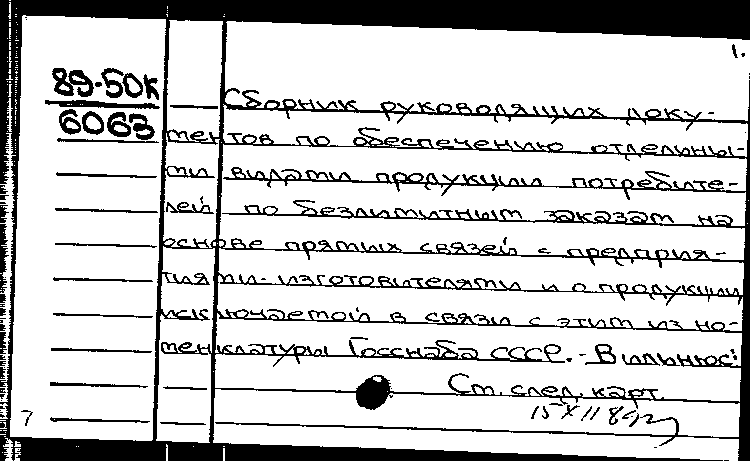 1.
89-50к
6063
Сборник руководящих доку-
ментов по обеспечению отдельны-
ми видами продукции потребите-
лей по безлимитным заказам на
основе прямых связей с предприя-
тиями-изготовителями и о продукции,
исключаемой в связи с этим из но-
менклатуры Госснаба СССР. - Вильнюс:
См. след. карт.
15 XII 89
7